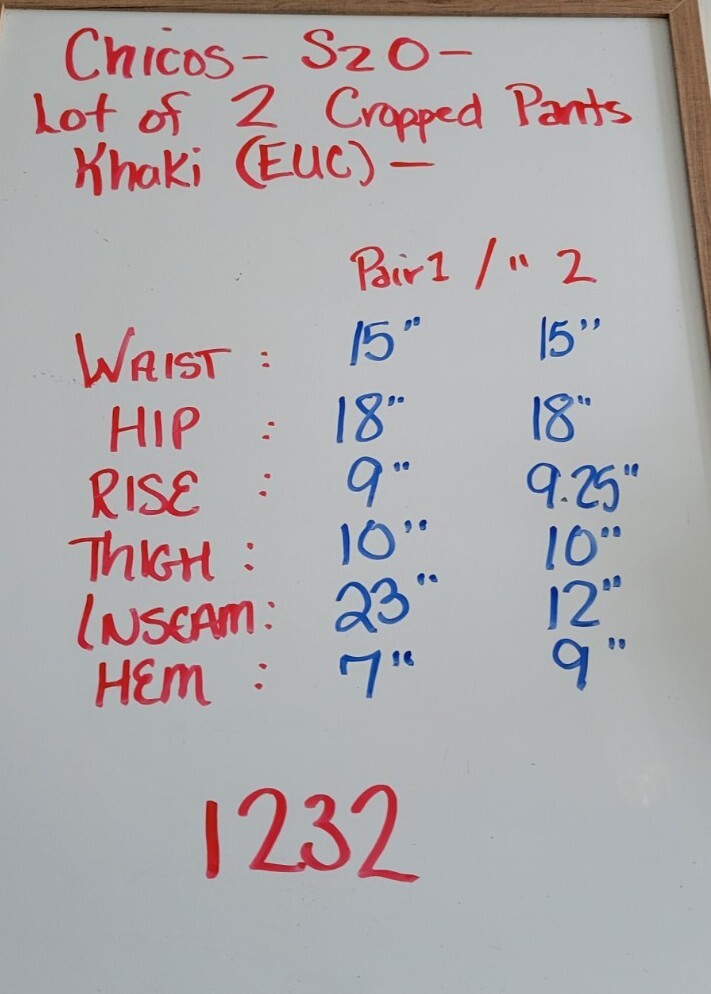 Chicos- S20-
Lot of 2 Cropped Pants
Khaki (EUC)-
Pair 1 / " 2
WAIST : 15" 15"
HIP : 18" 18"
RISE : 9" 9.25"
THIGH : 10" 10"
INSEAM: 23" 12"
HEM : 7" 9"
1232